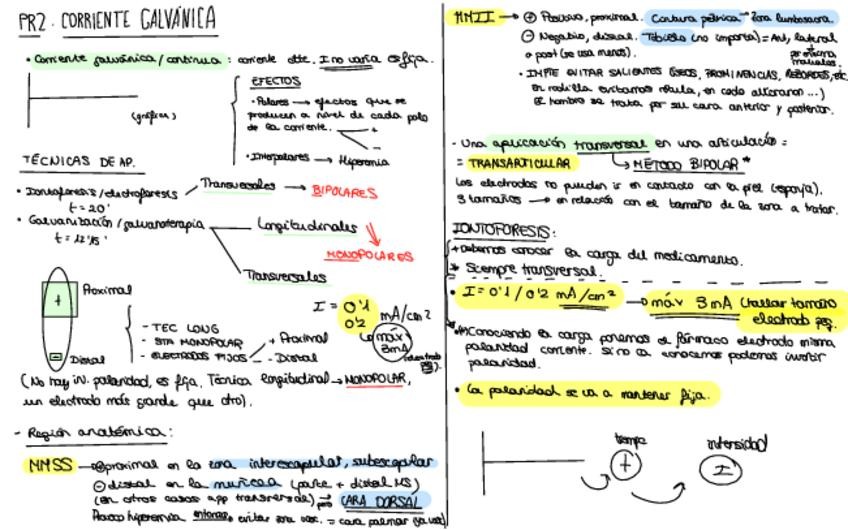 PR2. CORRIENTE GALVÁNICA
• Corriente galvánica/continua: corriente cte. I no varía es fija.
EFECTOS
• Polares → efectos que se
producen a nivel de cada polo
de la corriente. +
-
(gráfica)
• Interpolares → Hiperemia
TÉCNICAS DE AP.
• Iontoforesis/electroforesis Transversales → BIPOLARES
t = 20'
• Galvanización/galvanoterapia Longitudinales
MONOPOLARES
Transversales
+ Proximal
- Distal
- TEC LONG
- STA MONOPOLAR
- ELECTRODOS FIJOS + Proximal
- Distal
I = 0'1
0'2 mA/cm²
máx
3mA
(No hay inv. polaridad, es fija. Técnica longitudinal → MONOPOLAR,
un electrodo más grande que otro).
- Región anatómica:
MMSS → ⊕ proximal en la zona interescapular, subescapular
⊖ distal en la muñeca (parte + distal MS)
(en otros casos app transversal) CARA DORSAL
hiperemia evitar = cara palmar
MMII → ⊕ Positivo, proximal. Cintura pélvica - Zona lumbosacra
⊖ Negativo, distal. Tobillo (no importa) = Ant, lateral
o post (se usa menos).
• IMPTE EVITAR SALIENTES ÓSEOS, PROMINENCIAS, REBORDES, etc.
en rodilla evitamos rótula, en codo olécranon ...)
El hombro se trata por su cara anterior y posterior.
- Una aplicación transversal en una articulación =
= TRANSARTICULAR → MÉTODO BIPOLAR *
Los electrodos no pueden ir en contacto con la piel (esponja).
3 tamaños → en relación con el tamaño de la zona a tratar.
IONTOFORESIS:
* Debemos conocer la carga del medicamento.
* Siempre transversal.
• I = 0'1 / 0'2 mA/cm² → máx 3mA (hallar tamaño
electrodo peq.
Conociendo la carga ponemos el fármaco electrodo misma
polaridad corriente. Si no la conocemos podemos invertir
polaridad.
• La polaridad se va a mantener fija.
tiempo intensidad
+ I